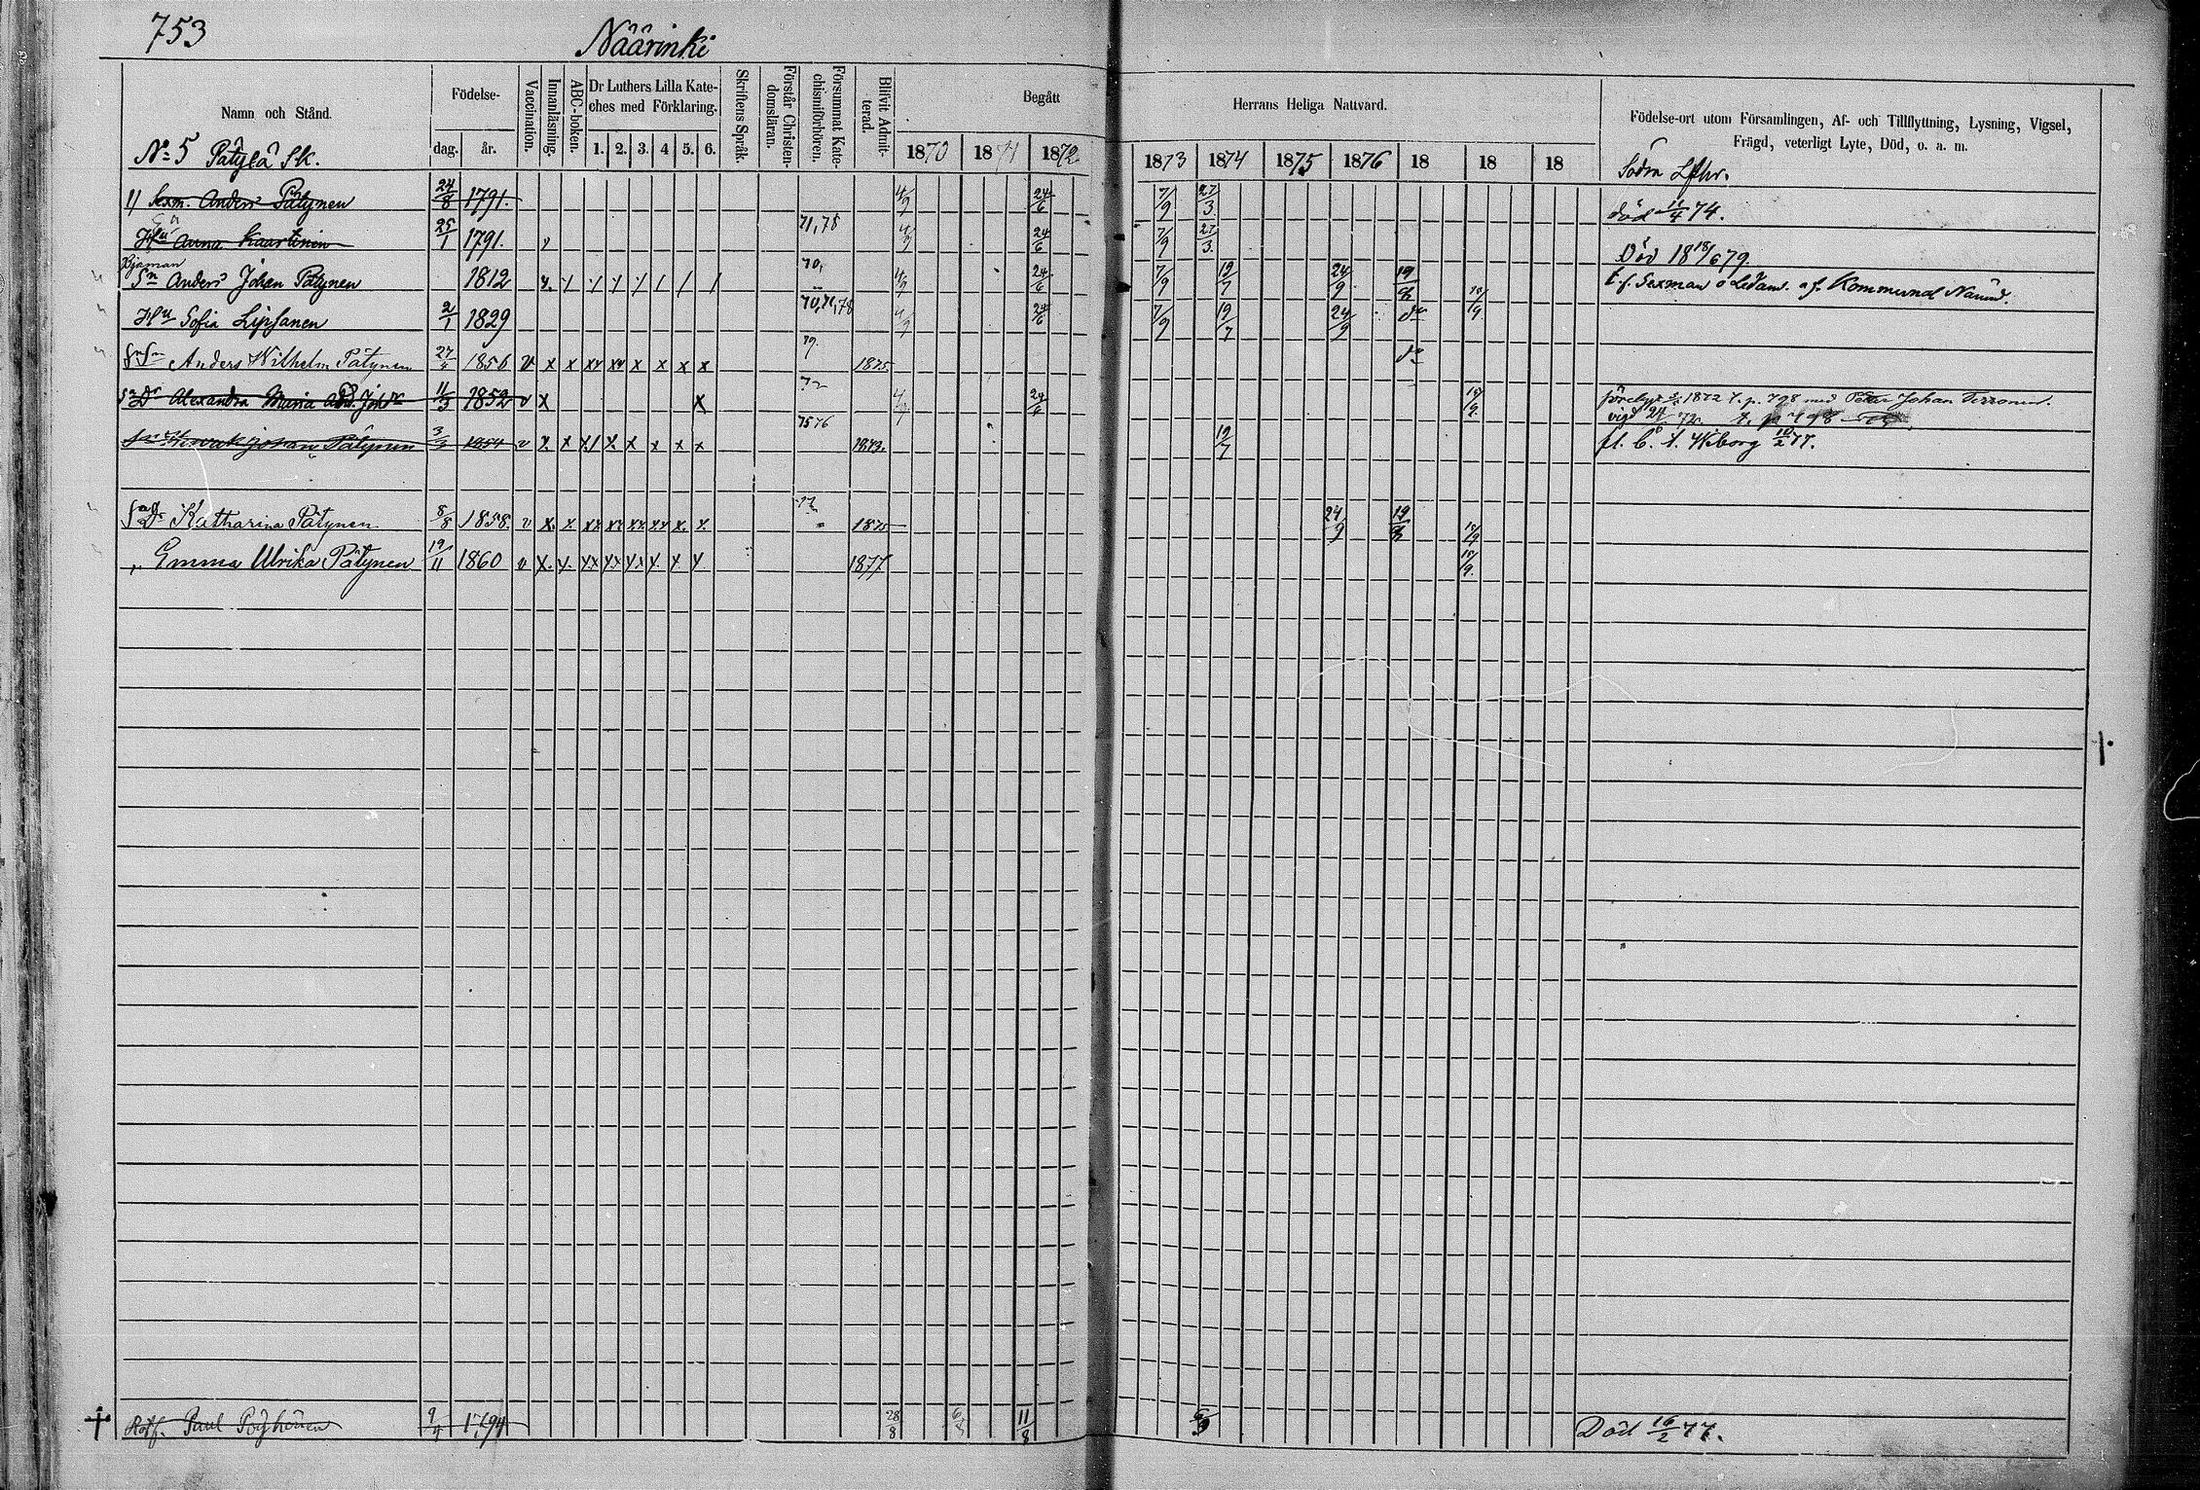 753
Näärinki
Namn och Stånd.
Födelse-
dag. år.
Vaccination.
Innanläsning.
ABC-boken.
Dr Luthers Lilla Kate-
ches med Förklaring.
1. 2. 3. 4 5. 6.
Skriftens Språk.
Förstår Christen-
domsläran.
Försummat Kate-
chismiförhören.
Blifvit Admit-
terad.
Begått
Herrans Heliga Nattvard.
1870 1871 1872.
1873 1874 1875 1876 18 18 18
Födelse-ort utom Församlingen, Af- och Tillflyttning, Lysning, Vigsel,
Frägd, veterligt Lyte, Död, o. a. m.
No 5 Pätylä Sk.
Södra Lfhr.
1) Sexm. Anders Pätynen 24/8 1791. 4/9 24/6 7/9 27/3 död 11/4 74.
Hu Anna Kaartinen 25/1 1791. 71,75 4/9 24/6 7/9 27/3 Död 18 18/6 79
Sn Anders Johan Pätynen 1812 70, 4/9 24/6 7/9 19/7 24/9 t. f. Sexman o Ledam. af Kommunal Nämd.
Hu Sofia Lipsanen 2/1 1829 70,71,78 4/9 24/6 7/9 19/7 24/9 do
Anders Wilhelm Pätynen 27/4 1856 v x x xx xx x x x x 79. 1875 do
Dr Alexandra Maria And. Joh. 11/3 1852 v x x 72 4/9 24/6 1872 t. p. 798 med Johan
vigd 24/ 72
Johan Pätynen 3/3 1854 v 7576 1873. 19/7 fl. b. t. Wiborg 10/2 77.
Dr Katharina Pätynen 8/8 1858. v 77 1875 24/9
" Emma Ulrika Pätynen 19/11 1860 v 1877
Paul 9/4 1794 28/8 6/8 11/8 Död 16/2 77.